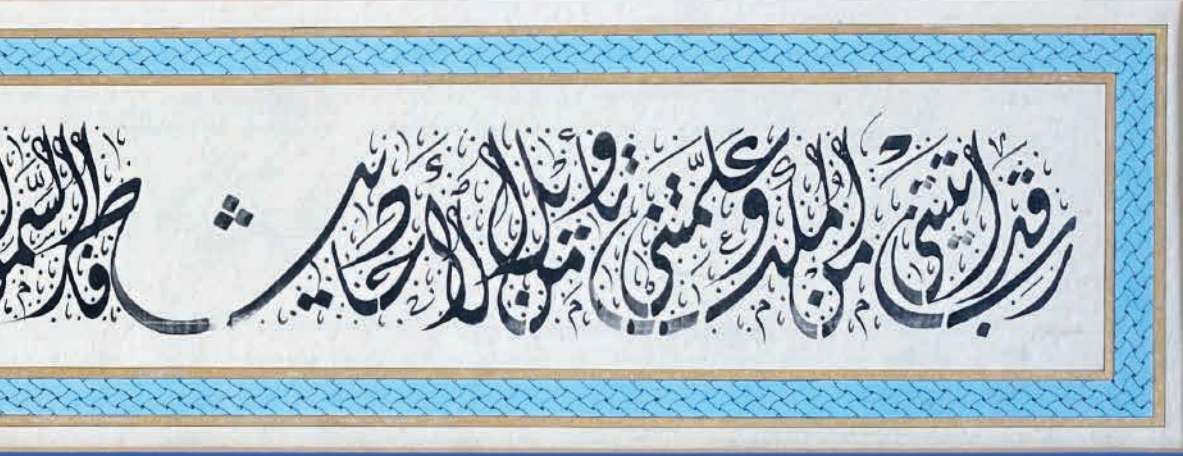 رب قد آتيتني من الملك وعلمتني من تأويل الأحاديث فاطر السم